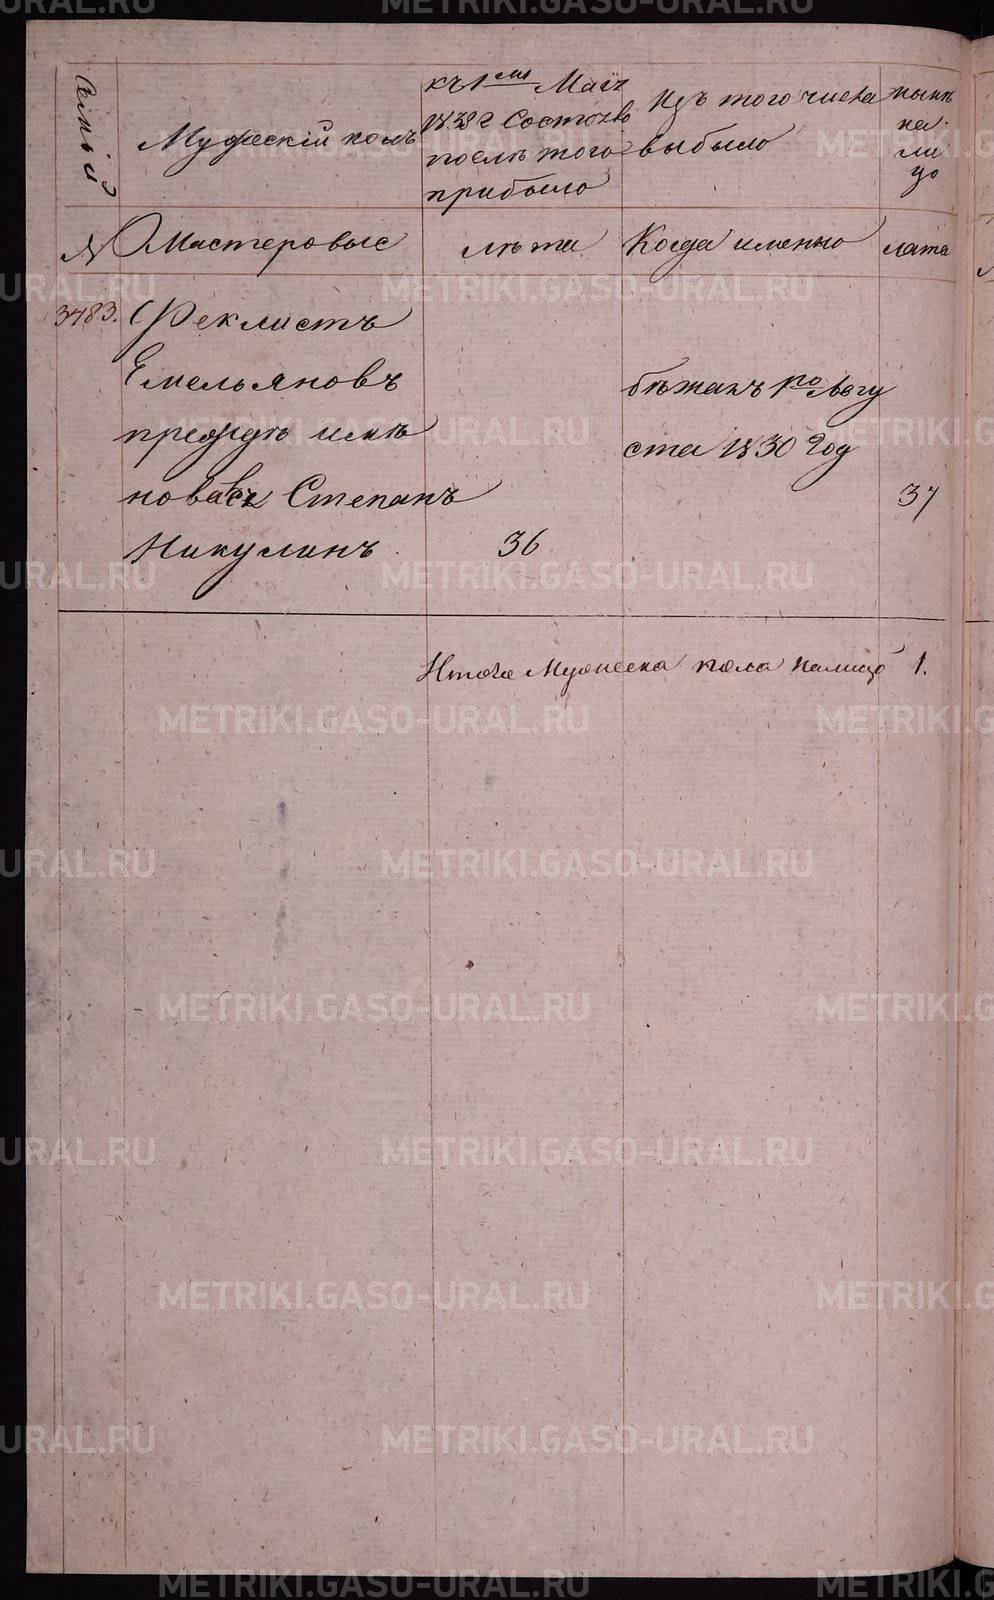 METRIKI.GASO-URAL.RU
Семьи
Мужескій полъ
къ 1му Маія
1832 г Состояло
послѣ того
прибыло
Изъ того числа
выбыло
нынѣ
на
ли
цо
№
Мастеровые
лѣта
Когда именно
лѣта
3783.
Феклистъ
Емельяновъ
прежде име
новавъ Степанъ
Никулинъ
36
бѣжалъ 1го Авгу
ста 1830 год
37
Итого Мужеска пола налицо 1.